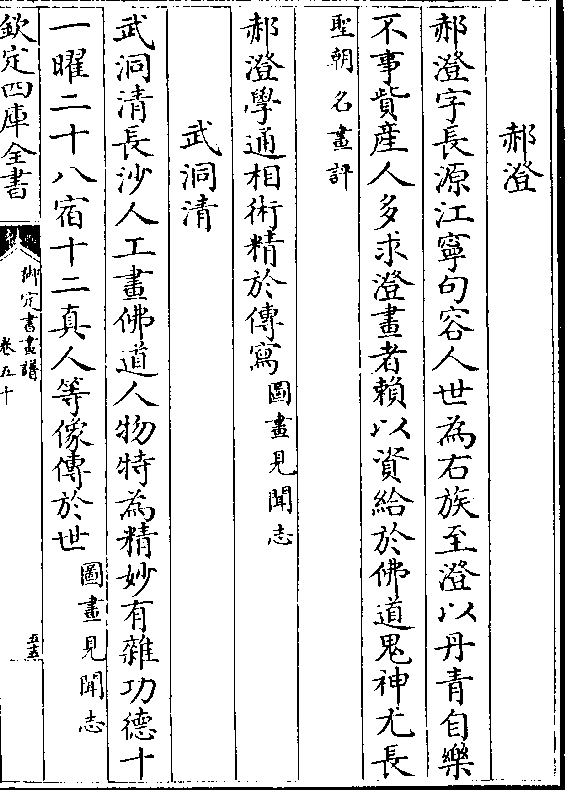 郝澄
郝澄字長源江寧句容人世為右族至澄以丹青自樂
不事貲産人多求澄畫者賴以資給於佛道鬼神尤長
聖朝名畫評
郝澄學通相術精於傳寫圖畫見聞志
武洞清
武洞清長沙人工畫佛道人物特為精妙有雜功德十
一曜二十八宿十二真人等像傳於世圖畫見聞志
欽定四庫全書
御定書畫譜
卷五十
五十五